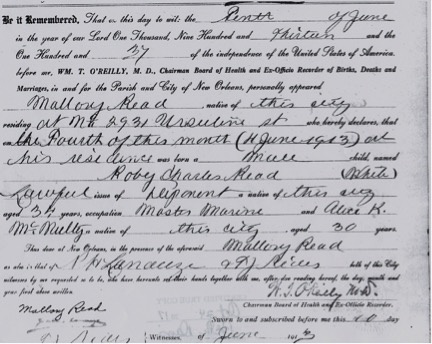 Be it Remembered, That on this day to wit: the Tenth of June
in the year of our Lord One Thousand, Nine Hundred and Thirteen and the
One Hundred and 37 of the independence of the United States of America.
before me, WM. T. O'REILLY, M. D., Chairman Board of Health and Ex-Officio Recorder of Births, Deaths and
Marriages, in and for the Parish and City of New Orleans, personally appeared
Mallory Read, native of this city
residing at No 2931 Ursuline st who hereby declares, that
on the Fourth of this month (4 June 1913) at
his residence was born a Male child, named
Roby Charles Read (White)
Lawful issue of deponent a native of this city
aged 34 years, occupation Master Marine and Alice K.
McMully a native of this city aged 30 years.
Thus done at New Orleans, in the presence of the aforesaid Mallory Read
as also in that of both of this City
witnesses by me requested so to be, who have hereunto set their hands together with me, after due reading hereof, the day, month and
year first above written
Mallory Read W. T. O'Reilly M.D.
Chairman Board of Health and Ex-Officio Recorder.
Sworn to and subscribed before me this 10 day
Witnesses. of June 191